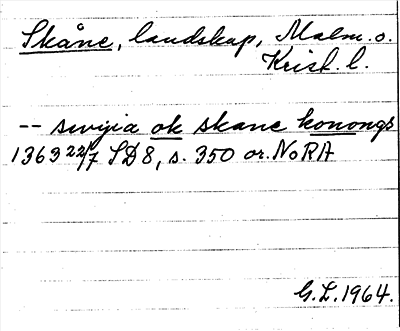 Skåne, landskap, Malm. o.
Krist. l.
-- swijia ok skane konongs
1363 22/7 SD 8, s. 350 or. NoRA
G.L. 1964.